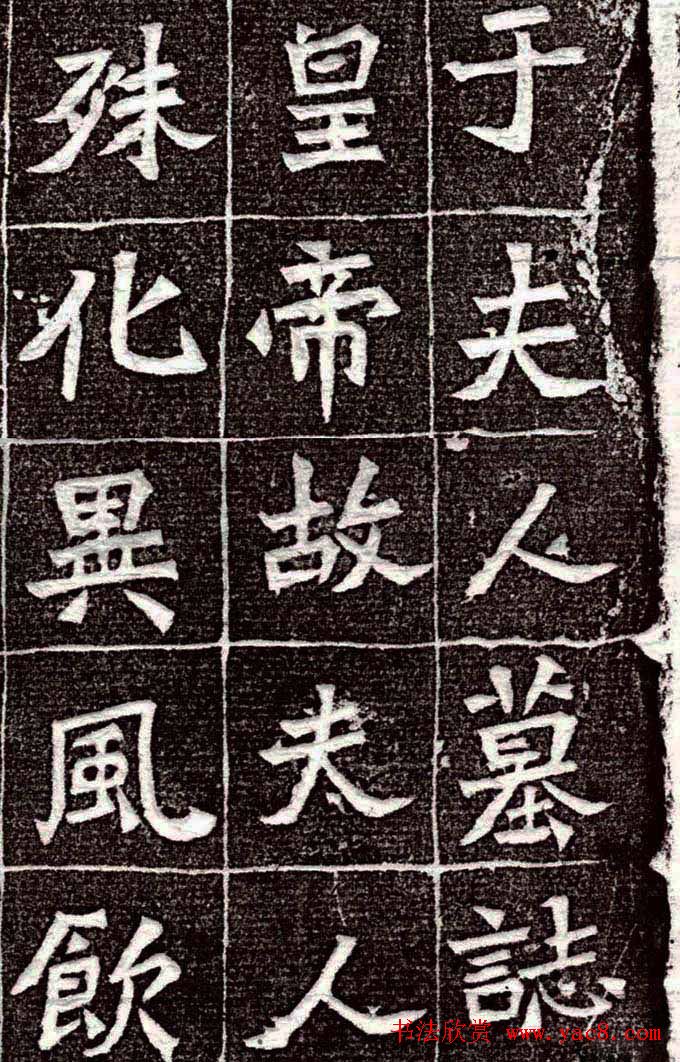 于夫人墓誌
皇帝故夫人
殊化異風飲
书法欣赏 www.yac8.com